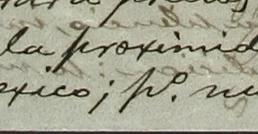 la proximid
xico; pº. nu